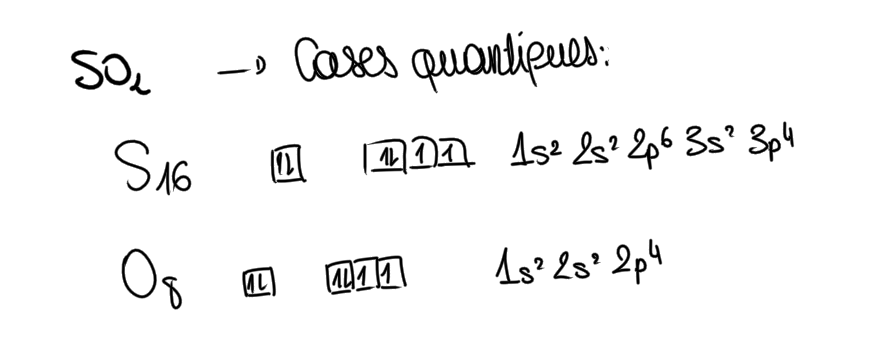 SO₂ → Cases quantiques:
S₁₆ [↑↓] [↑↓][↑][↑] 1s² 2s² 2p⁶ 3s² 3p⁴
O₈ [↑↓] [↑↓][↑][↑] 1s² 2s² 2p⁴